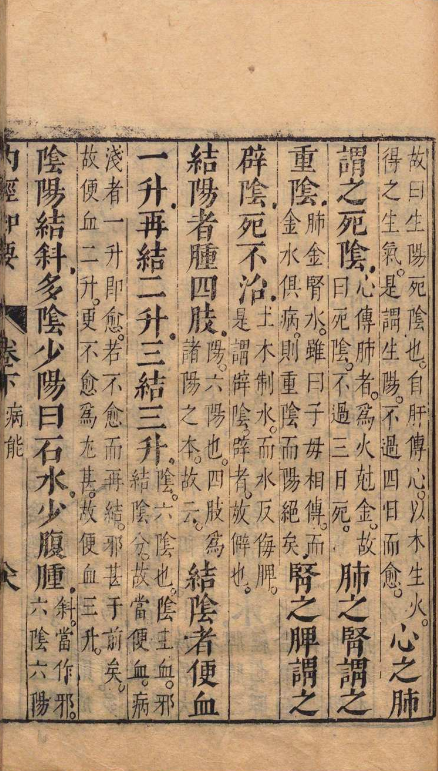 故曰生陽死陰也。自肝傳心。以木生火。
得之生氣。是謂生陽。不過四日而愈。
心之肺
謂之死陰。
心傳肺者。爲火尅金。故
曰死陰。不過三日死。
肺之腎謂之
重陰。
肺金腎水。雖曰子母相傳。而
金水俱病。則重陰而陽絕矣。
腎之脾謂之
辟陰。死不治。
土木制水。而水反侮脾。
是謂辟陰。辟者。放僻也。
結陽者腫四肢。
陽。六陽也。四肢爲
諸陽之本。故云。
結陰者便血
一升。再結二升。三結三升。
陰。六陰也。陰主血。邪
結陰分。故當便血。病
淺者一升即愈。若不愈而再結。邪甚于前矣。
故便血二升。更不愈爲尤甚。故便血三升。
陰陽結斜。多陰少陽曰石水。少腹腫。
斜。當作邪。
六陰六陽
內經知要
卷下
病能